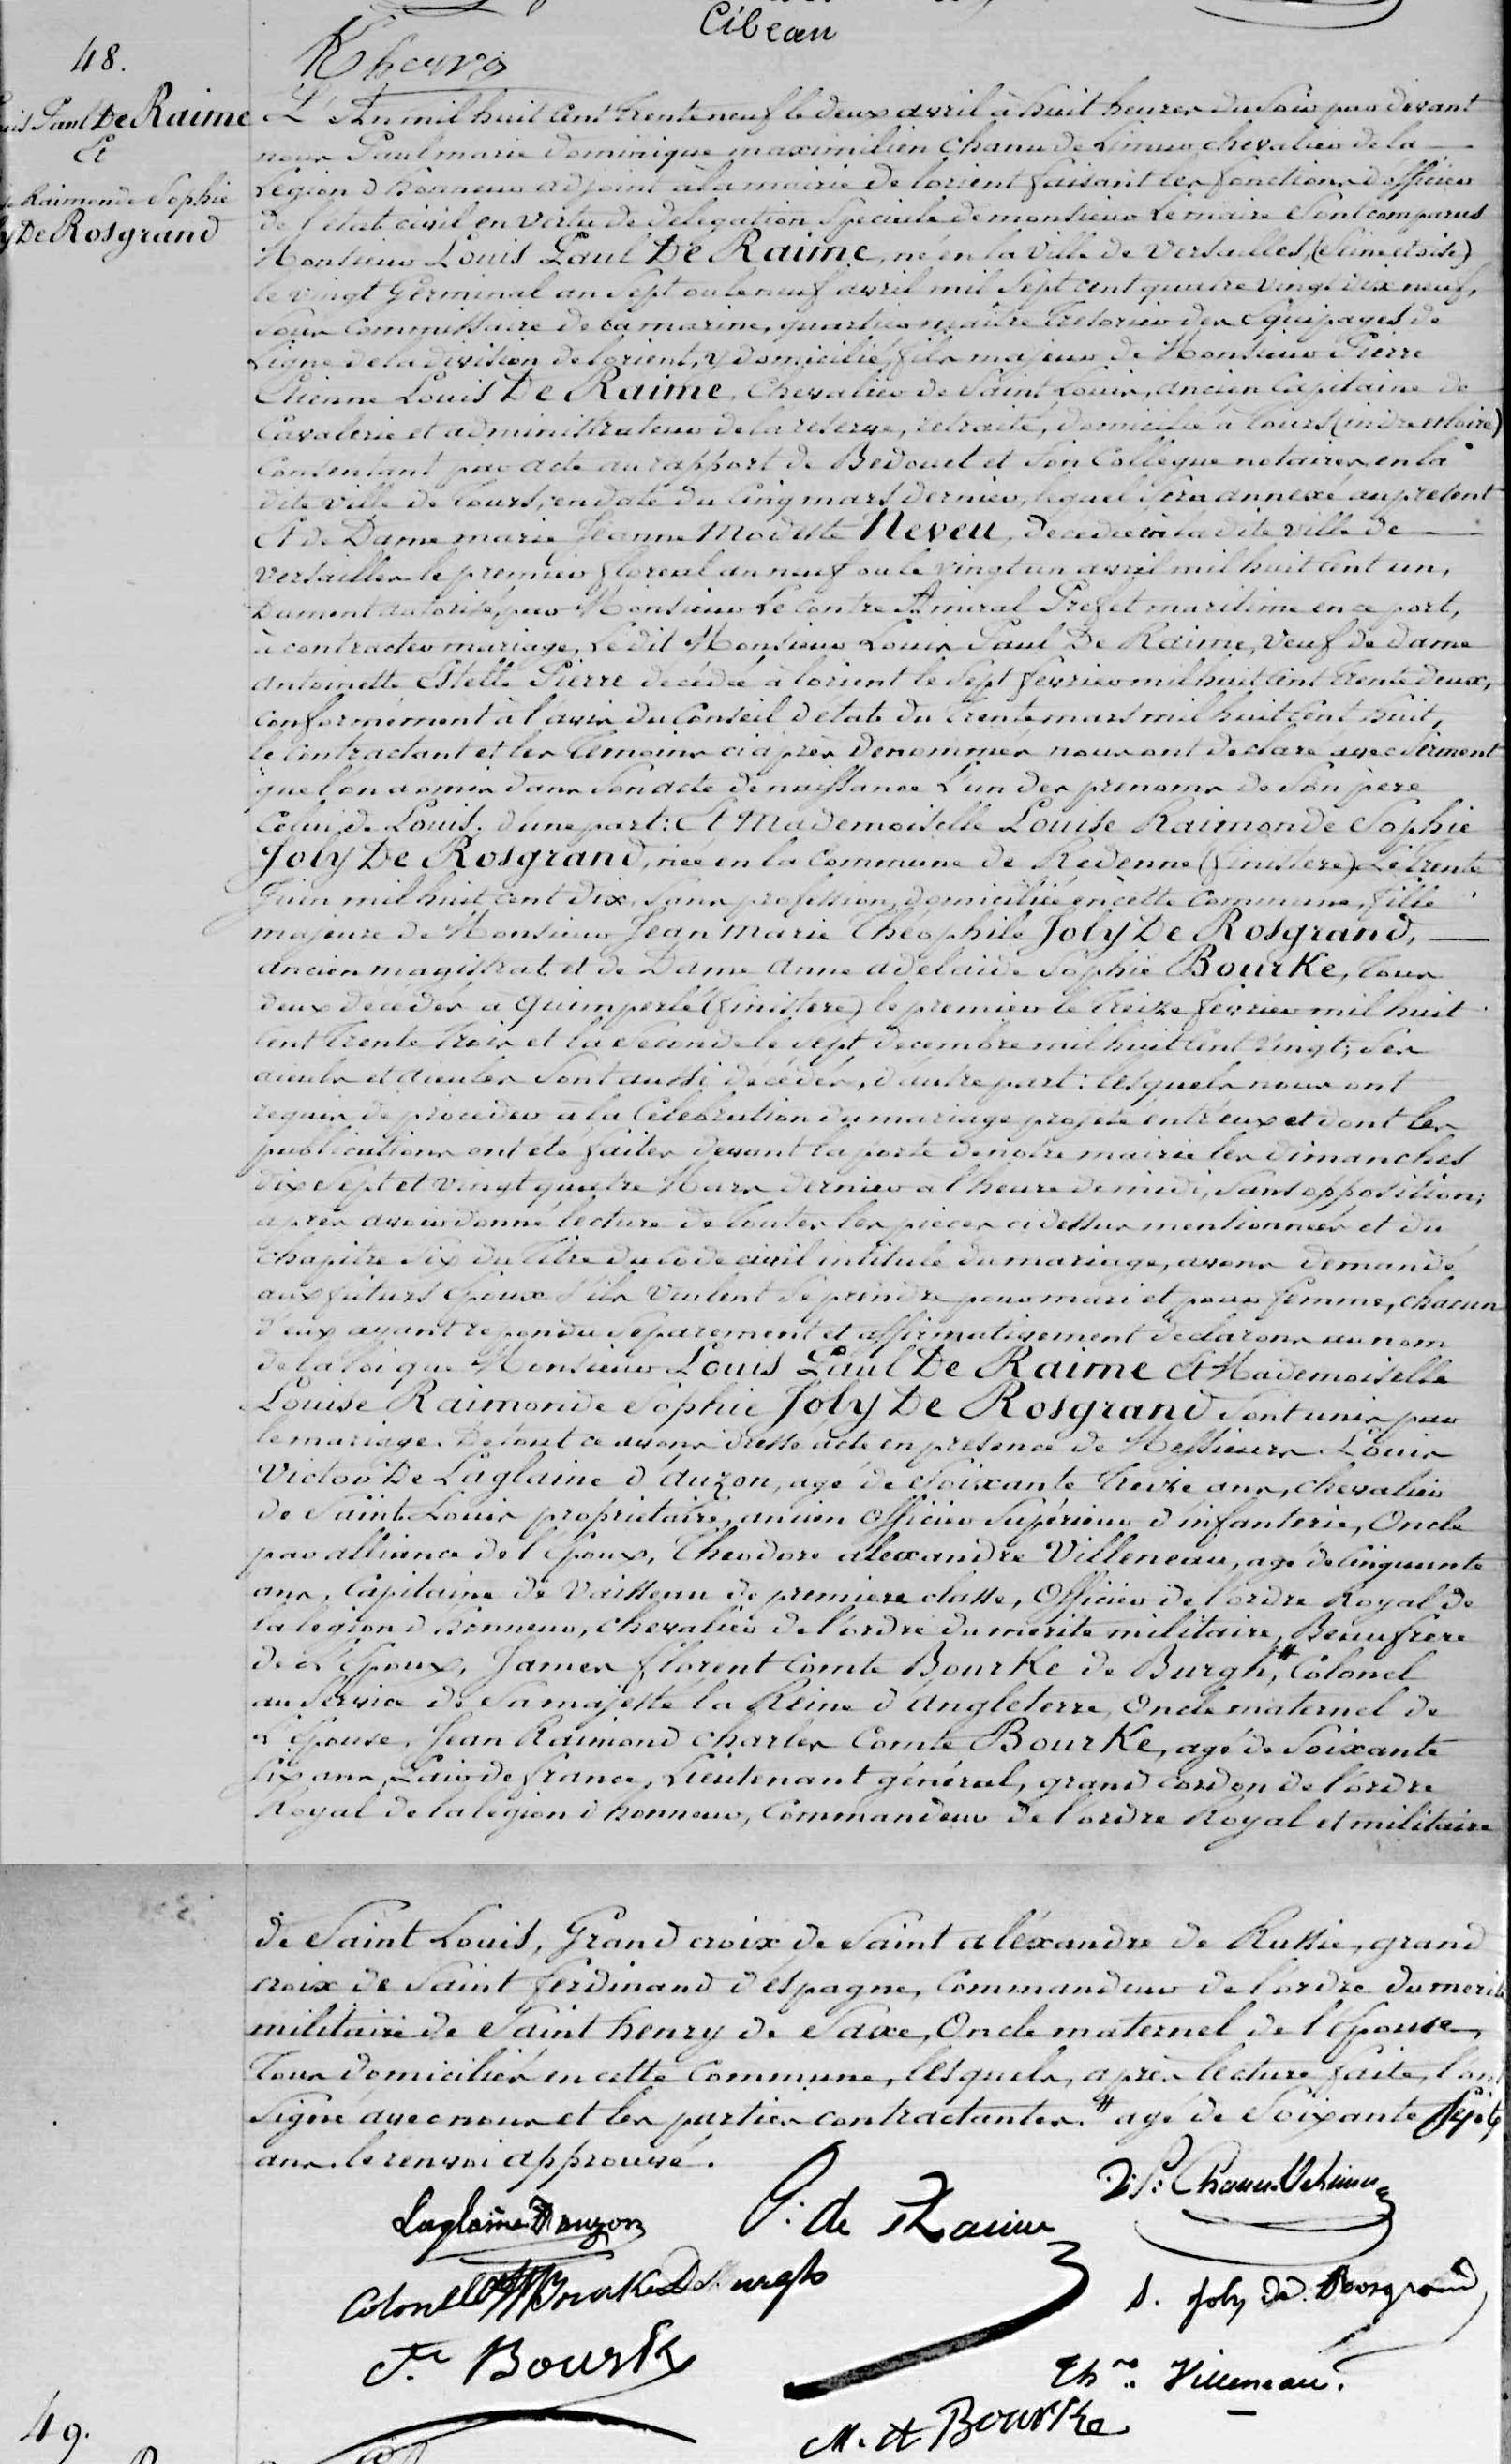 Cibeau
48.
Paul De Raime
Et
Raimonde Sophie
De Rosgrand
L'An mil huit cent trente neuf le deux avril à huit heures du Soir par devant
nous Paul marie dominique maximilien Chanu de Limur chevalier de la
Légion d honneur adjoint à la mairie de lorient faisant les fonctions d'officier
de l'état civil en vertu de délégation Speciale de monsieur Le maire Sont comparus
Monsieur Louis Paul De Raime, né en la Ville de Versailles, (Seine etoise)
le vingt Germinal an Sept ou le neuf avril mil Sept cent quatre vingt dix neuf,
Sous Commissaire de la marine, quartier maitre Tresorier des Equipages de
Ligne de la division de lorient, y domicilié, fils majeur de Monsieur Pierre
Etienne Louis De Raime, Chevalier de Saint Louis, ancien Capitaine de
Cavalerie et administrateur de la reserve, retraité, domicilié à Tours (indre etloire)
Consentant par acte au rapport de Bedouet et Son Collegue notaires en la
dite ville de Tours, en date du Cinq mars dernier, lequel Sera annexé au présent
Et de Dame marie Jeanne Modeste Neveu, décédée en la dite ville de
Versailles le premier floreal an neuf ou le vingt un avril mil huit cent un,
Dument autorisé, par Monsieur Le Contre Amiral Prefet maritime en ce port,
à contracter mariage, Le dit Monsieur Louis Paul De Raime, Veuf de dame
Antoinette Estelle Pierre décédée à lorient le Sept fevrier mil huit Cent Trente deux,
Conformément à l avis du Conseil d etat du trente mars mil huit Cent huit,
le Contractant et les Temoins ci après denommés nous ont declaré avec Serment
que l'on a omis dans Son acte de naissance L'un des prenoms de Son père
Celui de Louis. d'une part: Et Mademoiselle Louise Raimonde Sophie
Joly De Rosgrand, née en la Commune de Redenné (finistere) Le trente
Juin mil huit cent dix, Sans profession, domiciliée en cette Commune, fille
majeure de Monsieur Jean Marie Théophile Joly De Rosgrand,
ancien magistrat et de Dame Anne adelaide Sophie Bourke, Tous
deux décédés à Quimperlé (finistere) le premier le Treize fevrier mil huit
Cent Trente Trois et la Seconde le Sept decembre mil huit Cent Vingt; Ses
aieuls et aieules Sont aussi décédés, d'autre part: lesquels nous ont
requis de proceder à la Célébration du mariage projeté entr'eux et dont les
publications ont été faites devant la porte de notre mairie les dimanches
dix Sept et vingt quatre Mars dernier a l heure de midi, Sans opposition;
après avoir donné lecture de toutes les pieces ci dessus mentionnées et du
Chapitre Six du titre du Code civil intitulé du mariage, avons demandé
aux futurs Epoux S'ils Veulent Se prendre pour mari et pour femme, chacun
d'eux ayant repondu Séparement et affirmativement declarons au nom
de la loi que Monsieur Louis Paul De Raime Et Mademoiselle
Louise Raimonde Sophie Joly De Rosgrand Sont unis par
le mariage. De tout ce avons dressé acte en presence de Messieurs Louis
Victor De Laglaine d'auzon, agé de Soixante Treize ans, chevalier
de Saint Louis proprietaire, ancien Officier Supérieur d'infanterie, Oncle
par alliance de l'Epoux, Théodore alexandre Villeneau, agé de Cinquante
ans, Capitaine de Vaisseau de premiere classe, Officier de l'ordre Royal de
la légion d honneur, chevalier de l'ordre du mérite militaire, Beau frere
de L'Epoux, James florent Comte Bourke de Burgh,# Colonel
au Service de Sa majesté la Reine d'Angleterre, Oncle maternel de
L'Epouse, Jean Raimond Charles Comte Bourke, agé de Soixante
Six ans, Pair de france, Lieutenant général, grand Cordon de l'ordre
Royal de la légion d honneur, Commandeur de l'ordre Royal et militaire
de Saint Louis, Grand croix de Saint aléxandre de Russie, grand
croix de Saint ferdinand d'espagne, Commandeur de l'ordre du merite
militaire de Saint henry de Saxe, Oncle maternel de l'Epouse,
Tous domiciliés en cette Commune, lesquels, après lecture faite, l'ont
Signé avec nous et les parties contractantes. # agé de Soixante Sept
ans. le renvoi approuvé.
Laglaine Dauzon
P. de Raime
Colonel Bourke De Burgh
S. Joly de Rosgrand
Je Bourke
The. Villeneau.
M. A Bourke
49.